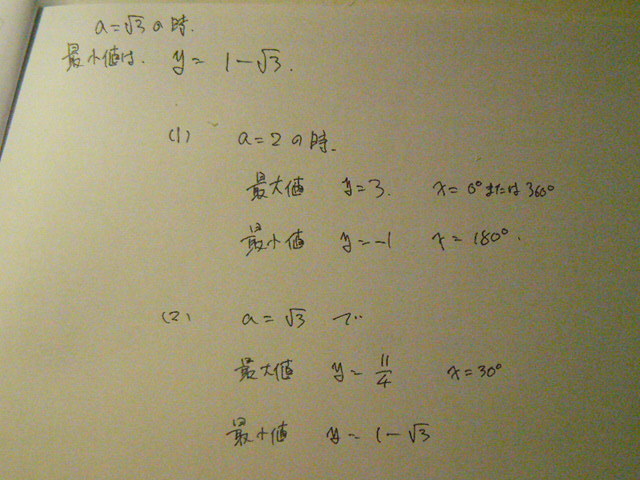 a=√3の時.
最小値は. y= 1-√3.
(1) a=2の時.
最大値 y=3. x=0°または360°
最小値 y=-1 x=180°.
(2) a=√3で
最大値 y=11/4 x=30°
最小値 y=1-√3